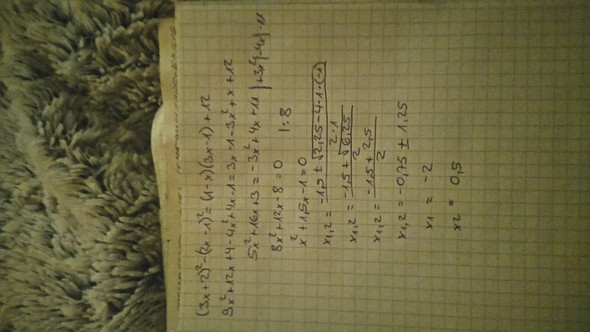 (3x+2)²-(2x-1)²=(1-x)(3x-1)+12
9x²+12x+4-4x²+4x-1=3x-1-3x²+x+12
5x²+16x+3=-3x²+4x+11 |+3x²|-4x|-11
8x²+12x-8=0 |:8
x²+1,5x-1=0
x1,2 = (-1,5 ± √(2,25-4·1·(-1)))/(2·1)
x1,2 = (-1,5 ± √6,25)/2
x1,2 = (-1,5 ± 2,5)/2
x1,2 = -0,75 ± 1,25
x1 = -2
x2 = 0,5